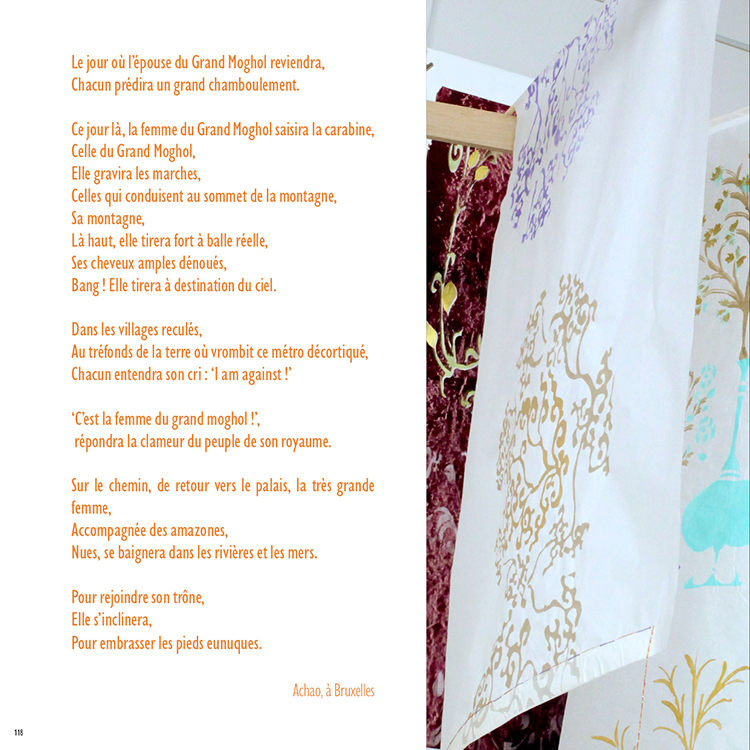 Le jour où l'épouse du Grand Moghol reviendra,
Chacun prédira un grand chamboulement.
Ce jour là, la femme du Grand Moghol saisira la carabine,
Celle du Grand Moghol,
Elle gravira les marches,
Celles qui conduisent au sommet de la montagne,
Sa montagne,
Là haut, elle tirera fort à balle réelle,
Ses cheveux amples dénoués,
Bang ! Elle tirera à destination du ciel.
Dans les villages reculés,
Au tréfonds de la terre où vrombit ce métro décortiqué,
Chacun entendra son cri : 'I am against !'
'C'est la femme du grand moghol !',
répondra la clameur du peuple de son royaume.
Sur le chemin, de retour vers le palais, la très grande
femme,
Accompagnée des amazones,
Nues, se baignera dans les rivières et les mers.
Pour rejoindre son trône,
Elle s'inclinera,
Pour embrasser les pieds eunuques.
Achao, à Bruxelles
118